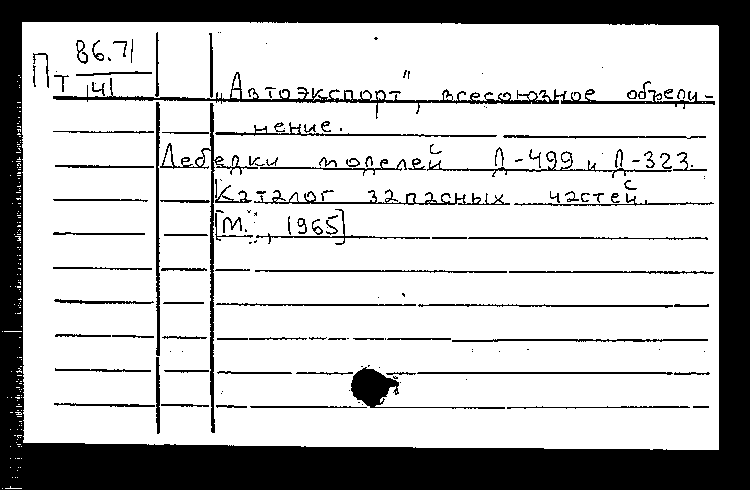 Пт 86.71/141
„Автоэкспорт", всесоюзное объеди-
нение.
Лебедки моделей Д-499 и Д-323.
Каталог запасных частей.
[М., 1965]